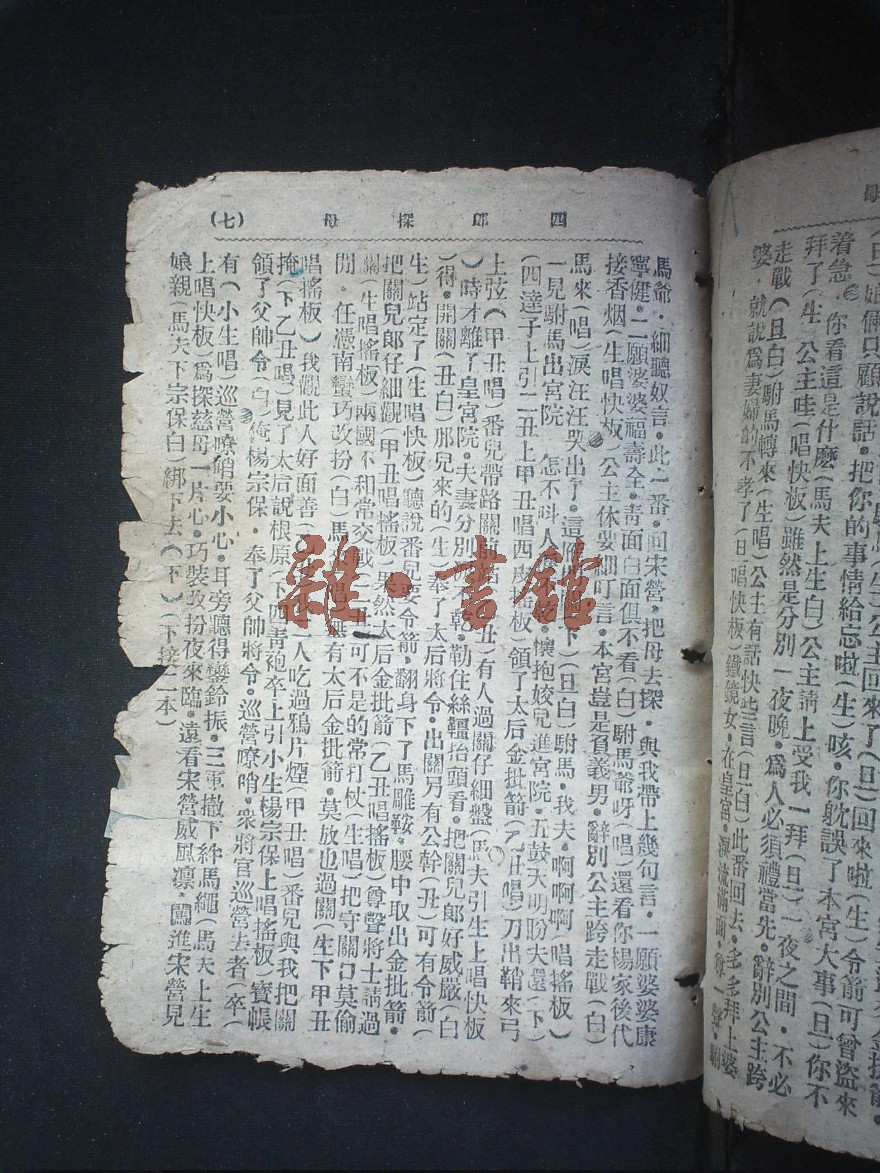 着急·你看這是什麽(馬夫上生白)公主請上受我一拜(旦)一夜之間·不必
拜了(生)公主哇(唱快板)雖然是分別一夜晚·爲人必須禮當先·辭別公主跨
走戰(旦白)駙馬轉來(生唱)公主有話快些言(旦白)此番回去·多多拜上婆
婆·就說爲妻婦的不孝了(旦唱快板)鐵鏡女·在皇宮·淚流滿面·尊一聲·駙
(七) 四郎探母
馬爺·細聽奴言·此一番·回宋營·把母去探·與我帶上幾句言·一願婆婆康
寧健·二願婆婆福壽全·靑面白面俱不看(白)駙馬爺呀(唱)還看你楊家後代
接香烟(生唱快板)公主休要細叮言·本宮豈是負義男·辭別公主跨走戰(白)
馬來(唱)淚汪汪哭出了·這 (下)(旦白)駙馬·我夫·啊啊啊(唱搖板)
一見駙馬出宮院·怎不叫人 ·懷抱姣兒進宮院·五鼓天明盼夫還(下)
(四達子上引二丑上甲丑唱西皮搖板)領了太后金批箭(乙丑唱)刀出鞘來弓
上弦(甲丑唱)番兒帶路關前站( 丑)有人過關仔細盤(馬夫引生上唱快板
)時才離了皇宮院·夫妻分別 乾·勒住絲韁抬頭看·把關兒郎好威嚴(白
)得·開關(丑白)那兒來的(生)奉了太后將令·出關另有公幹(丑)可有令箭(
生)站定了(生唱快板)聽說番兒 令箭·翻身下了馬雕鞍·腰中取出金批箭·
把關兒郎仔細觀(甲丑唱搖板)果然太后金批箭(乙丑唱搖板)尊聲將士請過
關(生唱搖板)兩國不和常交戰( 丑)可不是的常打杖(生唱)把守關口莫偷
閒·任憑南蠻巧改扮(白)馬 唱 無有太后金批箭·莫放也過關(生下甲丑
唱搖板)我觀此人好面善( 人吃過鴉片煙(甲丑唱)番兒與我把關
掩(下乙丑唱)見了太后說根原(下四靑袍卒上引小生楊宗保上唱搖板)寳帳
領了父帥令(白)俺楊宗保·奉了父帥將令·巡營嘹哨·衆將官巡營去者(卒)
有(小生唱)巡營嘹哨要小心·耳旁聽得鑾鈴振·三軍撤下絆馬繩(馬夫上生
上唱快板)爲探慈母一片心·巧裝改扮夜來臨·遠看宋營威風凜·闖進宋營見
娘親(馬夫下宗保白)綁下去(下)(下接二本)
雜·書館